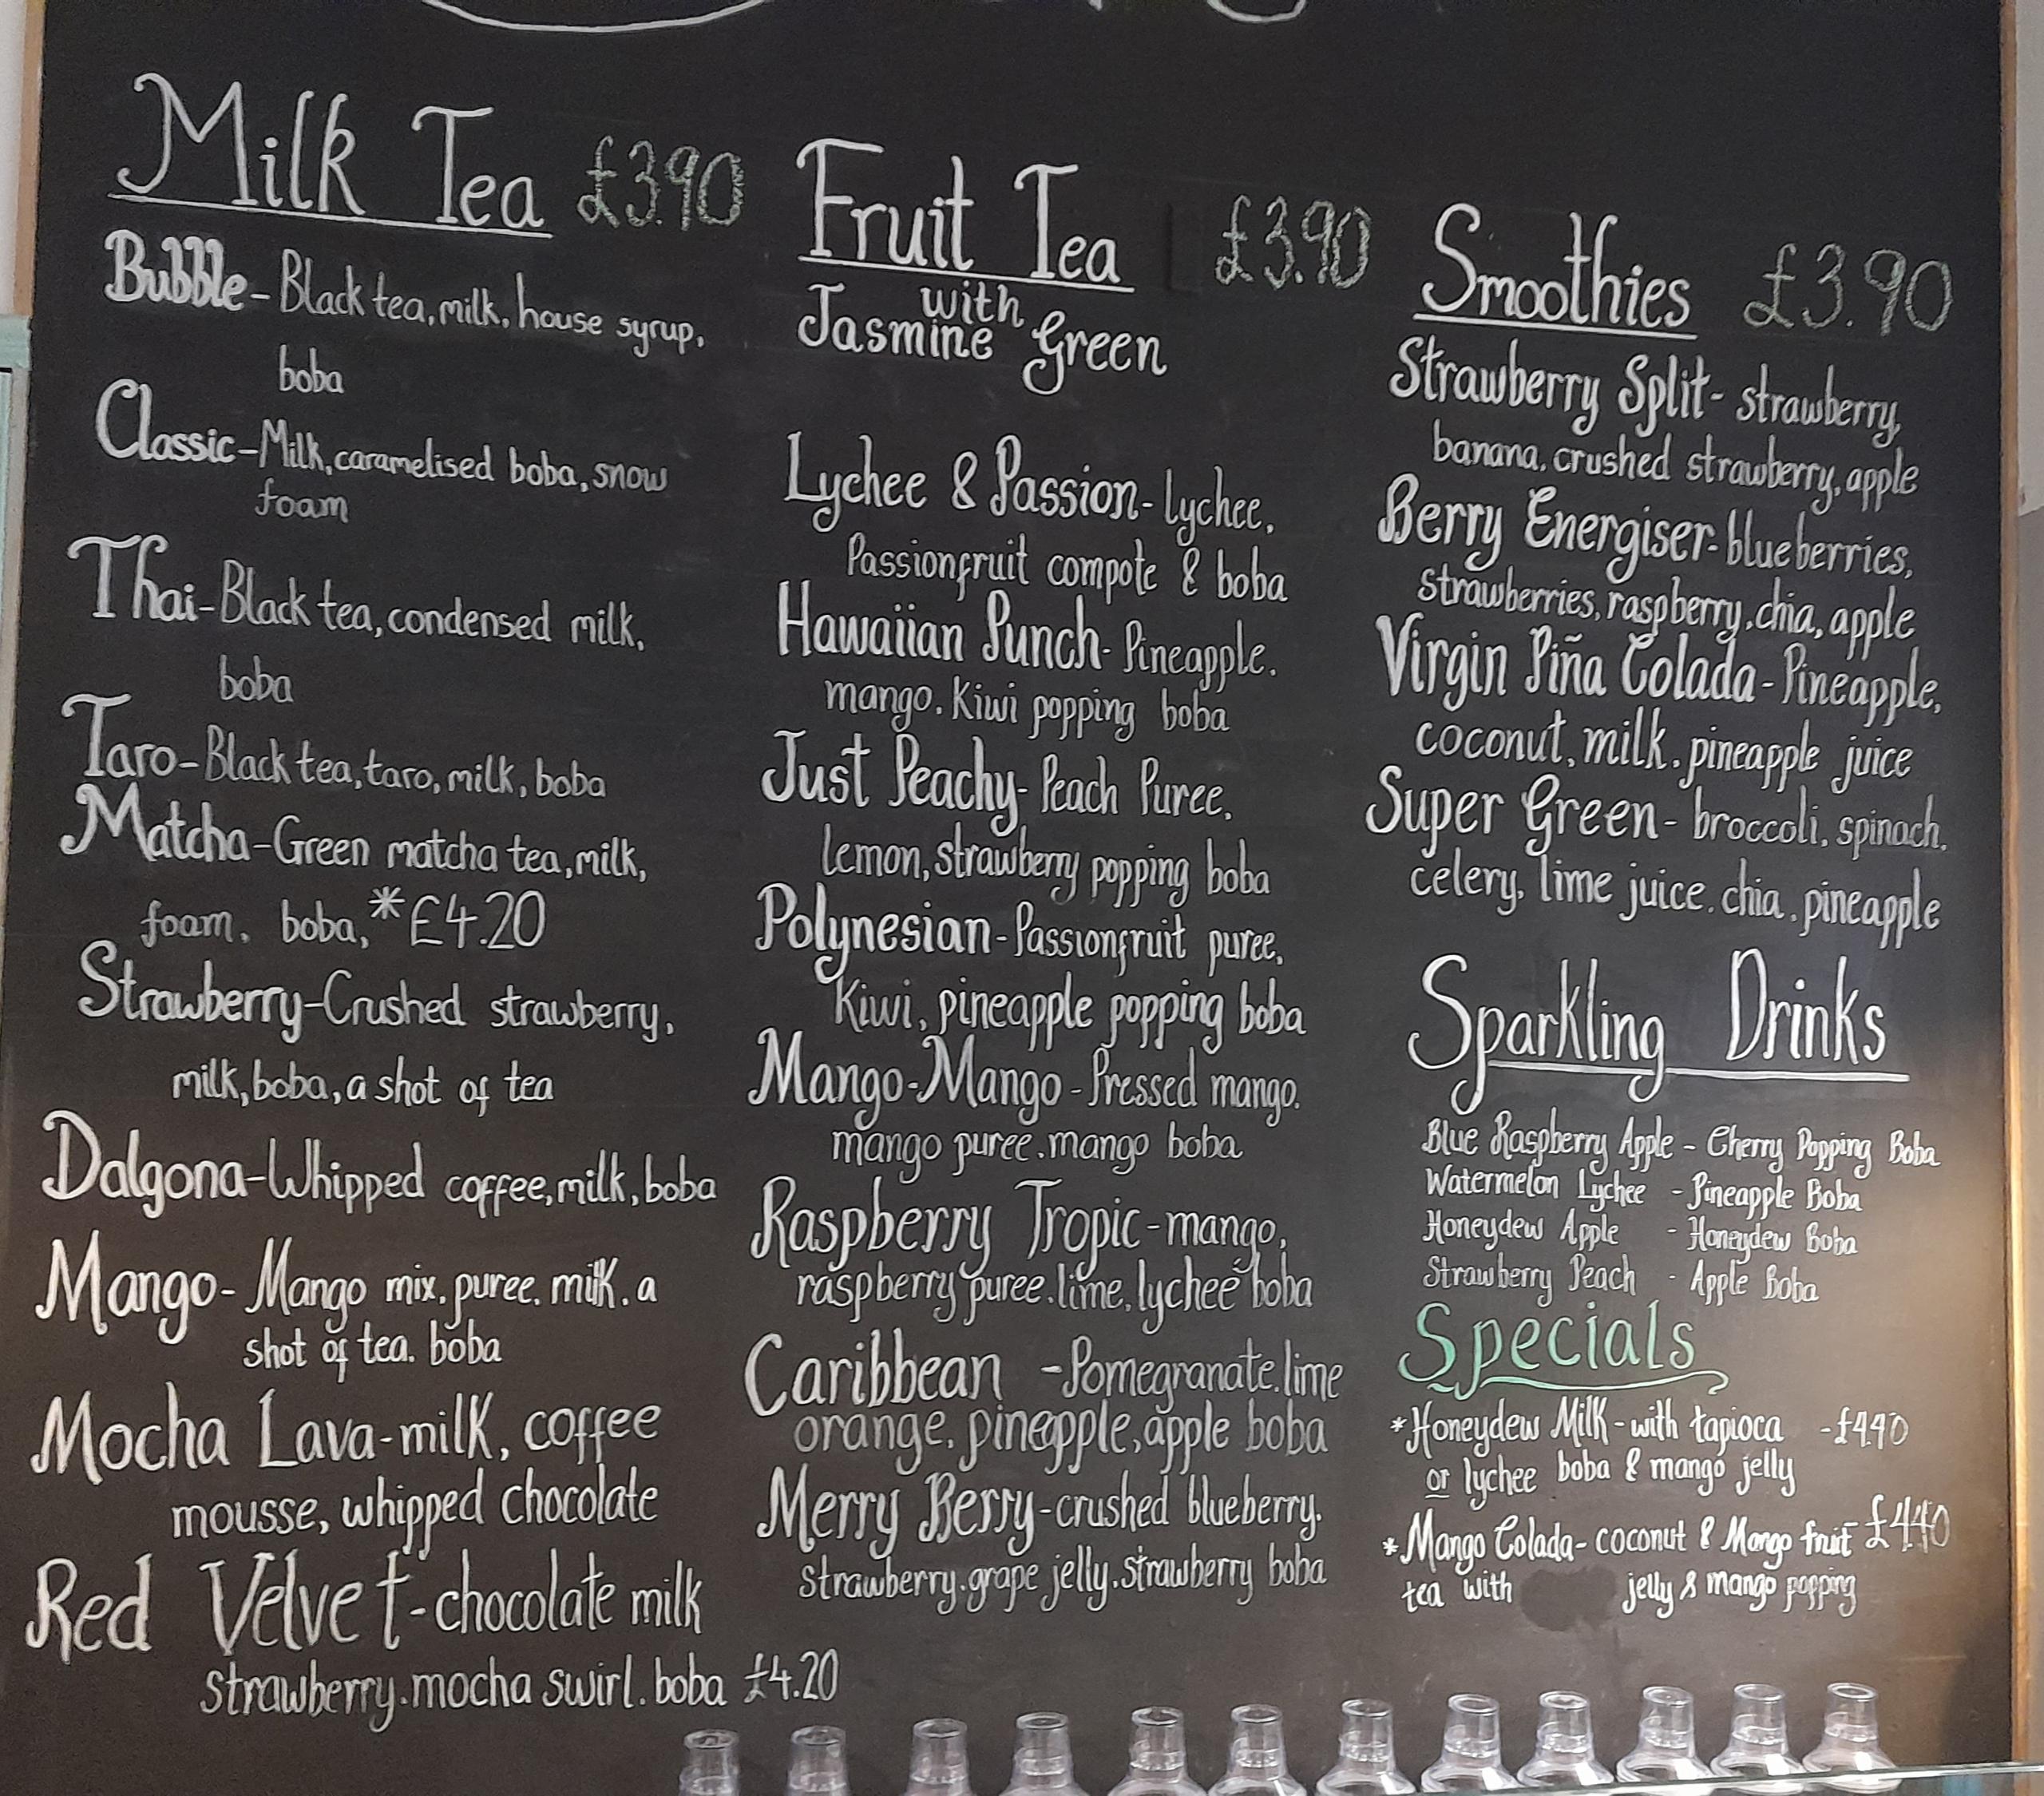 Milk Tea £3.90
Bubble - Black tea, milk, house syrup,
boba
Classic - Milk, caramelised boba, snow
foam
Thai - Black tea, condensed milk,
boba
Taro - Black tea, taro, milk, boba
Matcha - Green matcha tea, milk,
foam, boba, *£4.20
Strawberry - Crushed strawberry,
milk, boba, a shot of tea
Dalgona - Whipped coffee, milk, boba
Mango - Mango mix, puree, milk, a
shot of tea, boba
Mocha Lava - milk, coffee
mousse, whipped chocolate
Red Velvet - chocolate milk
strawberry, mocha swirl, boba £4.20
Fruit Tea £3.90
with
Jasmine Green
Lychee & Passion - lychee,
Passionfruit compote & boba
Hawaiian Punch - Pineapple,
mango, Kiwi popping boba
Just Peachy - Peach Puree,
lemon, strawberry popping boba
Polynesian - Passionfruit puree,
Kiwi, pineapple popping boba
Mango-Mango - Pressed mango,
mango puree, mango boba
Raspberry Tropic - mango,
raspberry puree, lime, lychee boba
Caribbean - Pomegranate, lime
orange, pineapple, apple boba
Merry Berry - crushed blueberry,
strawberry, grape jelly, strawberry boba
Smoothies £3.90
Strawberry Split - strawberry,
banana, crushed strawberry, apple
Berry Energiser - blueberries,
strawberries, raspberry, chia, apple
Virgin Piña Colada - Pineapple,
coconut, milk, pineapple juice
Super Green - broccoli, spinach,
celery, lime juice, chia, pineapple
Sparkling Drinks
Blue Raspberry Apple - Cherry Popping Boba
Watermelon Lychee - Pineapple Boba
Honeydew Apple - Honeydew Boba
Strawberry Peach - Apple Boba
Specials
*Honeydew Milk - with tapioca -
or lychee boba & mango jelly
*Mango Colada - coconut & Mango fruit - £4.40
tea with jelly & mango popping